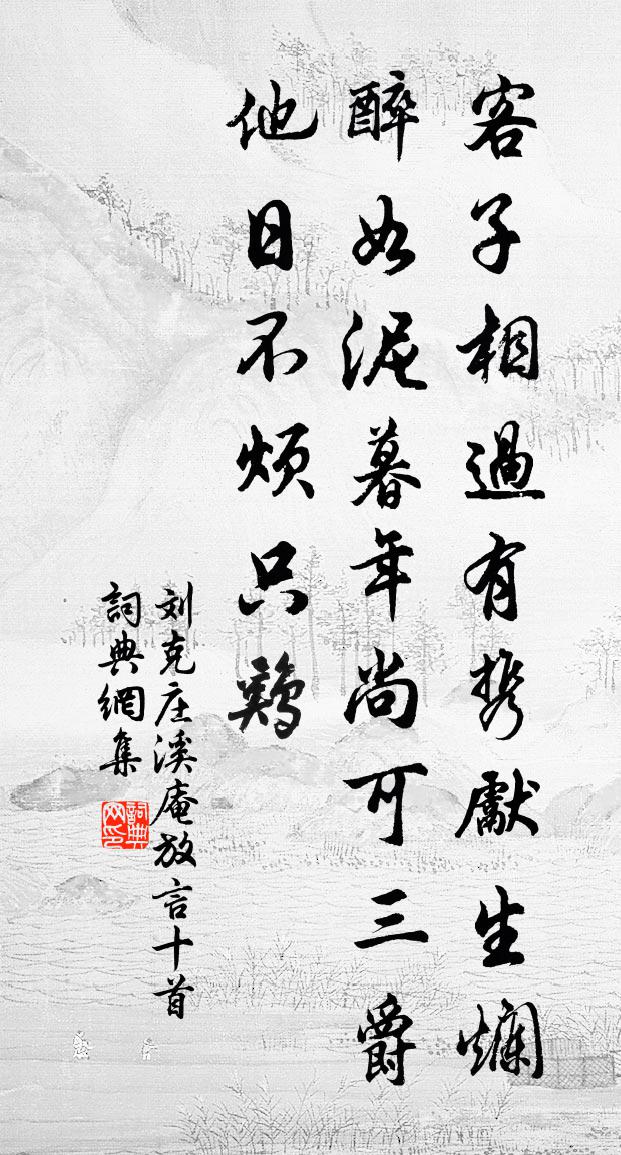 客子相過有携獻生爛
醉如泥暮年尚可三爵
他日不烦只鷄
刘克庄溪庵放言十首
詞典網集
詞典网印